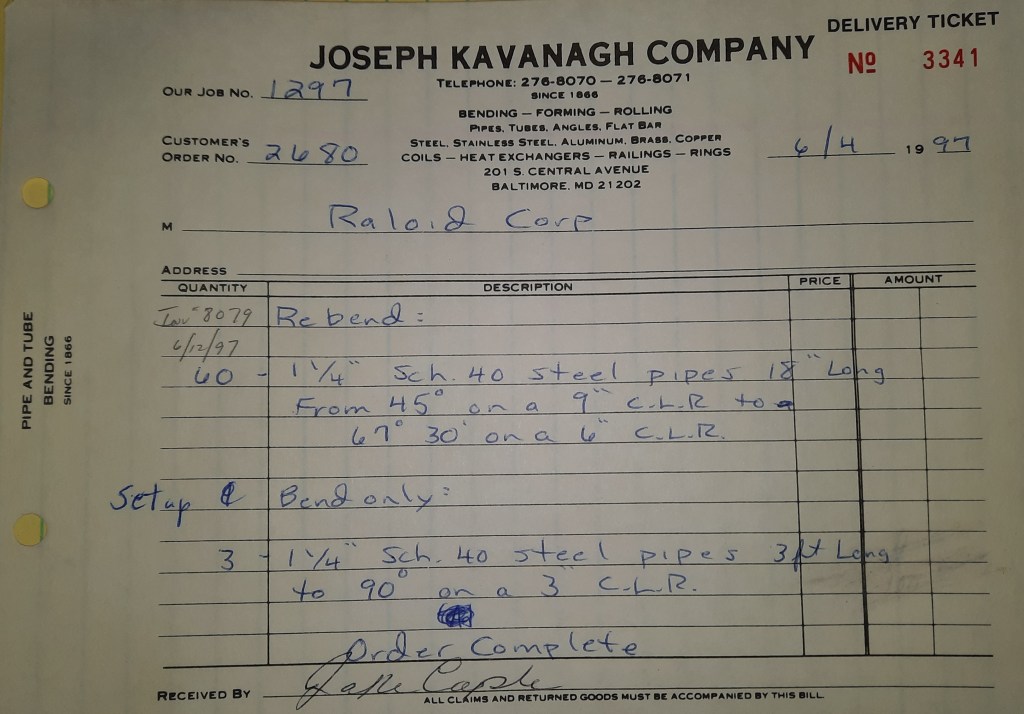 DELIVERY TICKET
JOSEPH KAVANAGH COMPANY
No 3341
TELEPHONE: 276-8070 — 276-8071
SINCE 1866
OUR JOB NO. 1297
BENDING — FORMING — ROLLING
PIPES, TUBES, ANGLES, FLAT BAR
STEEL, STAINLESS STEEL, ALUMINUM, BRASS, COPPER
CUSTOMER'S
ORDER NO. 2680
COILS — HEAT EXCHANGERS — RAILINGS — RINGS
6/4 1997
201 S. CENTRAL AVENUE
BALTIMORE, MD 21202
M Raloid Corp
ADDRESS
QUANTITY DESCRIPTION PRICE AMOUNT
Inv# 8079 Rebend:
6/12/97
60 - 1 1/4" Sch. 40 steel pipes 18" Long
From 45° on a 9" C.L.R to
67° 30' on a 6" C.L.R.
Setup & Bend only:
3 - 1 1/4" Sch. 40 steel pipes 3 ft Long
to 90° on a 3" C.L.R.
Order Complete
RECEIVED BY
ALL CLAIMS AND RETURNED GOODS MUST BE ACCOMPANIED BY THIS BILL
PIPE AND TUBE
BENDING
SINCE 1866